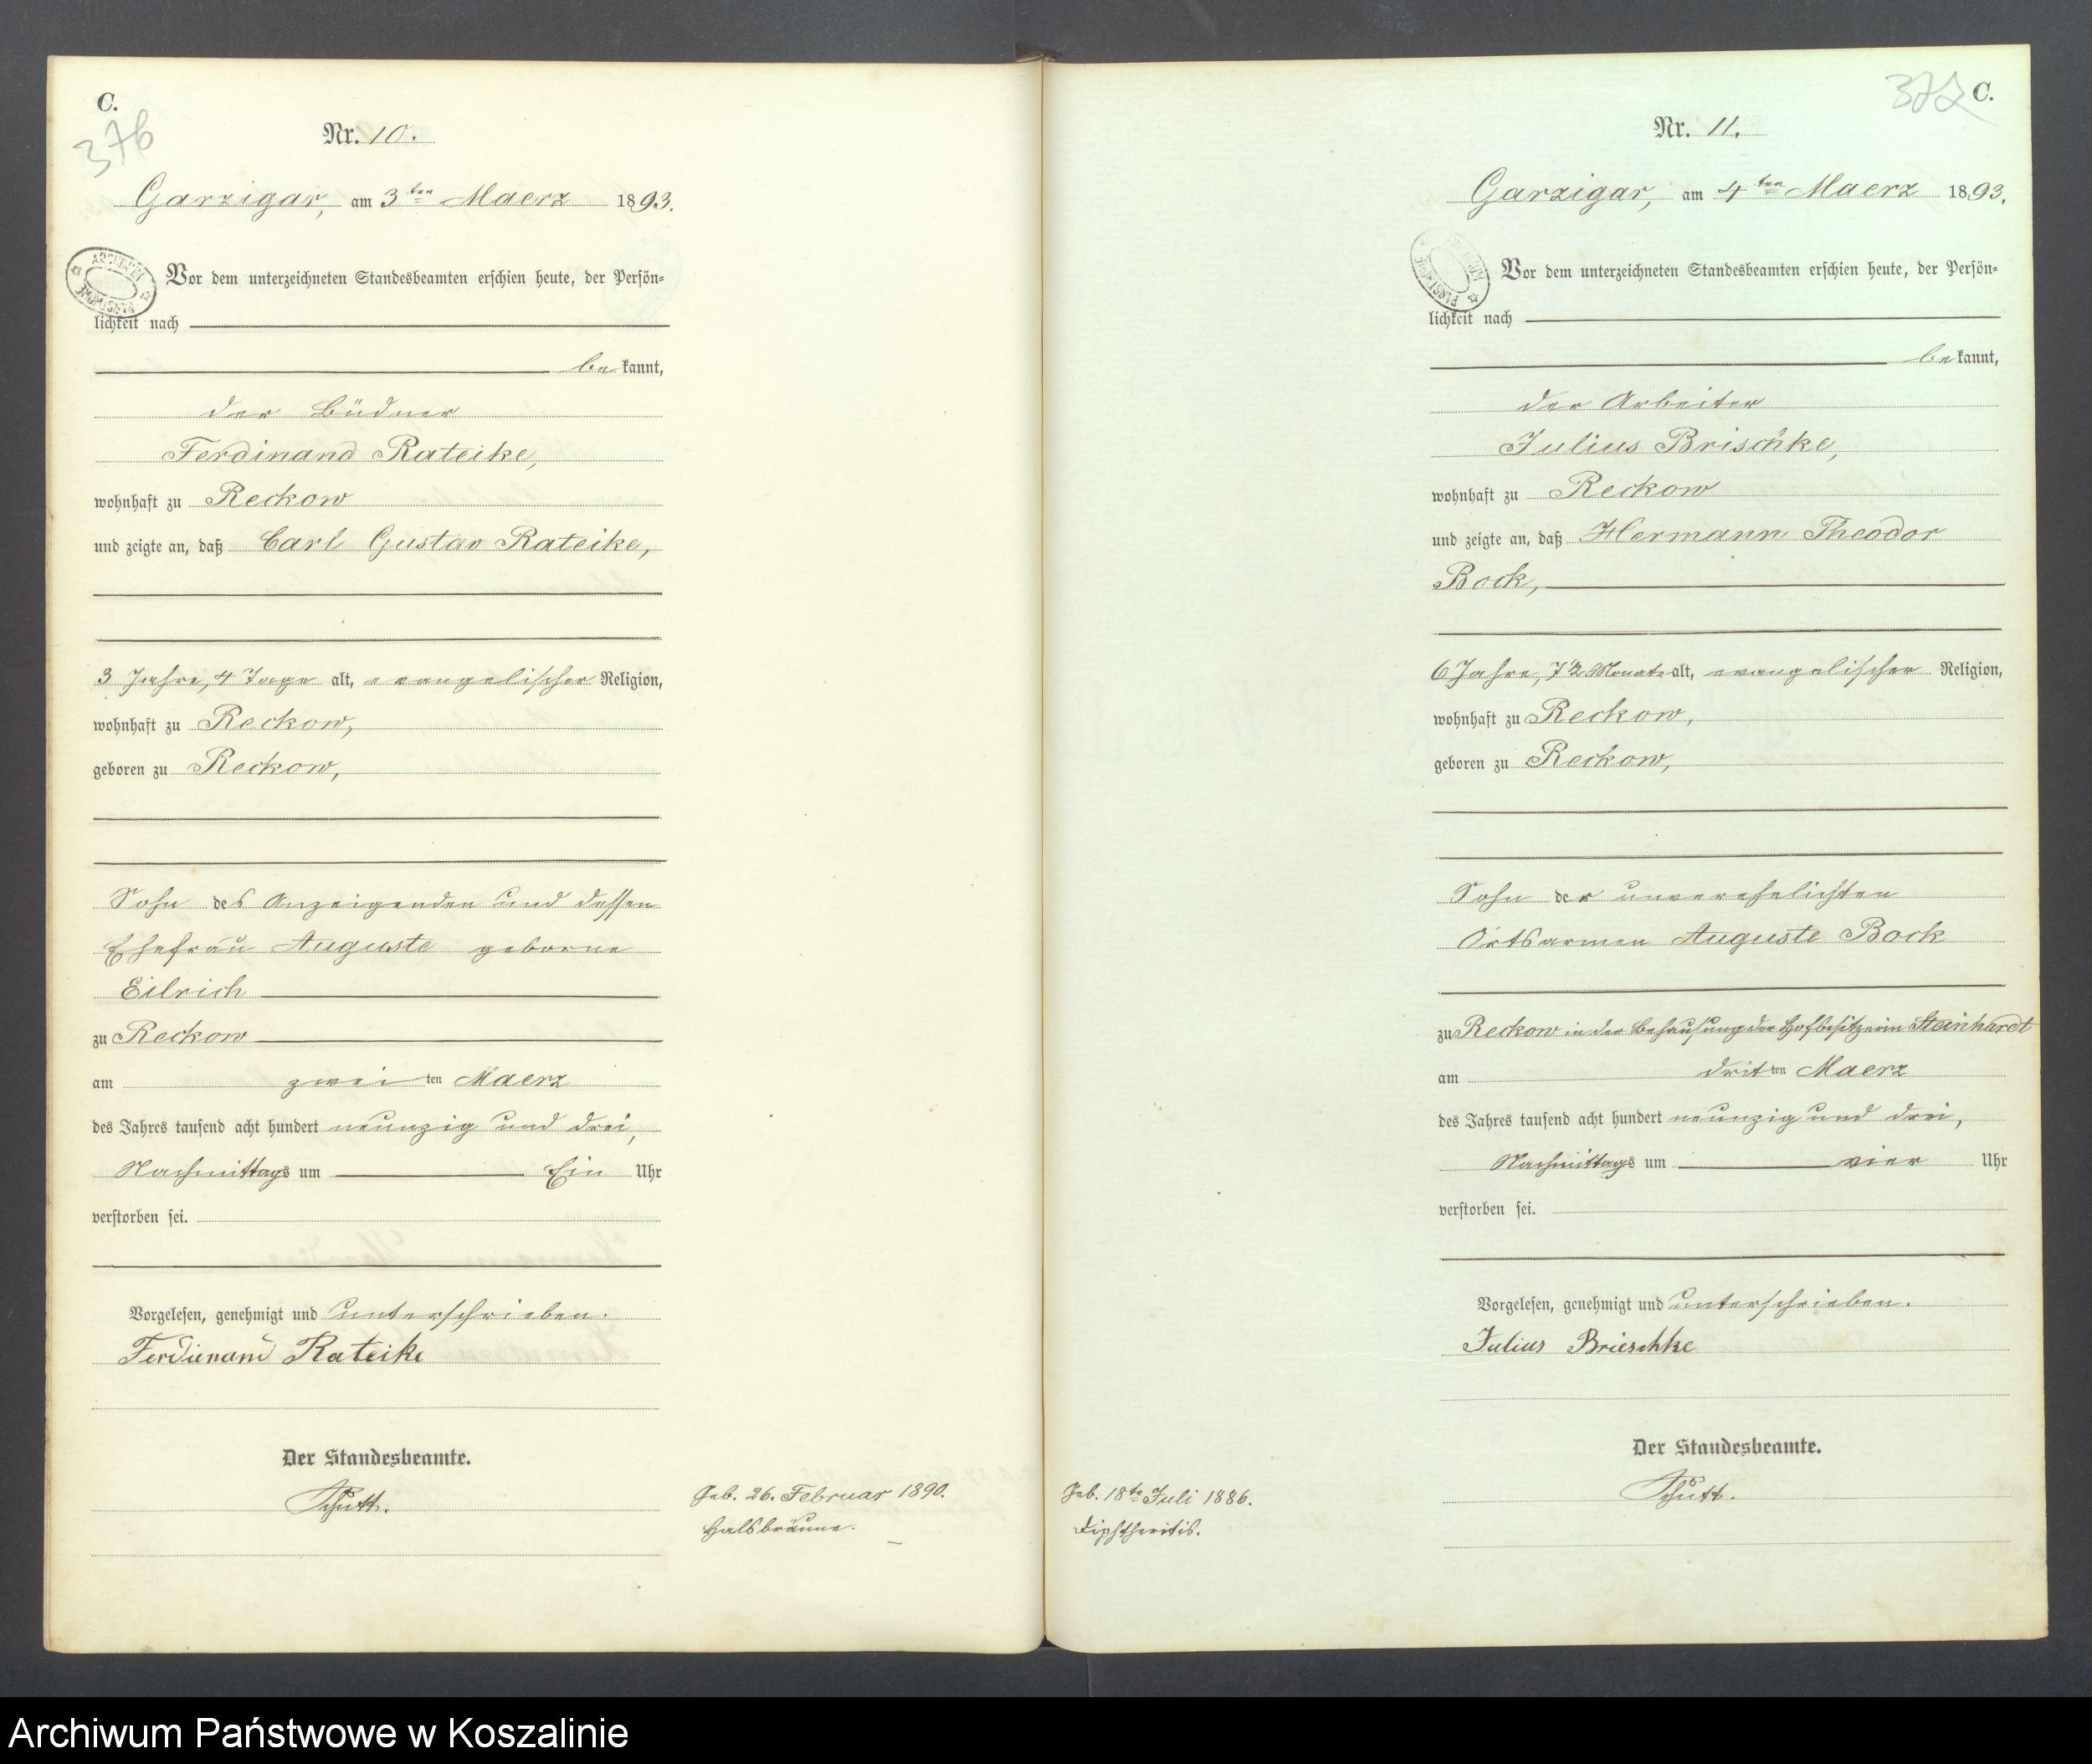 C.
376
Nr. 10.
Garzigar, am 3ten Maerz 1893.
ARCHIWUM PAŃSTWOWE
Vor dem unterzeichneten Standesbeamten erschien heute, der Persön-
lichkeit nach
be kannt,
der Büdner
Ferdinand Rateike,
wohnhaft zu Reckow
und zeigte an, daß Carl Gustav Rateike,
3 Jahre, 4 Tage alt, evangelischer Religion,
wohnhaft zu Reckow,
geboren zu Reckow,
Sohn des Anzeigenden und dessen
Ehefrau Auguste geborne
Eilrich
zu Reckow
am zwei ten Maerz
des Jahres tausend acht hundert neunzig und drei,
Nachmittags um Ein Uhr
verstorben sei.
Vorgelesen, genehmigt und unterschrieben.
Ferdienand Rateike
Der Standesbeamte.
Schütt.
Geb. 26. Februar 1890.
Halsbräune.
C.
Nr. 11.
Garzigar, am 4ten Maerz 1893.
ARCHIWUM PAŃSTWOWE
Vor dem unterzeichneten Standesbeamten erschien heute, der Persön-
lichkeit nach
be kannt,
der Arbeiter
Julius Brischke,
wohnhaft zu Reckow
und zeigte an, daß Hermann Theodor
Bock,
6 Jahre, 7½ Monate alt, evangelischer Religion,
wohnhaft zu Reckow,
geboren zu Reckow,
Sohn der unverehelichten
Ortsarmen Auguste Bock
zu Reckow in der Behausung der Hofbesitzerin Steinhardt
am drit ten Maerz
des Jahres tausend acht hundert neunzig und drei,
Nachmittags um vier Uhr
verstorben sei.
Vorgelesen, genehmigt und unterschrieben.
Julius Brieschke
Der Standesbeamte.
Schütt.
Geb. 18te Juli 1886.
Diphtheritis.
Archiwum Państwowe w Koszalinie